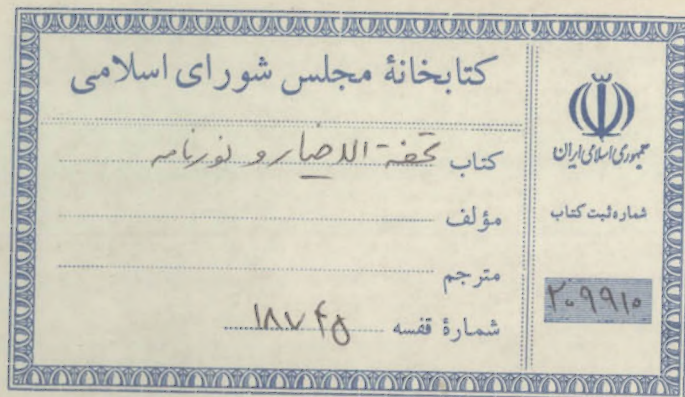 کتابخانهٔ مجلس شورای اسلامی
کتاب تحفة الاخیار و نورنامه
مؤلف
مترجم
شمارهٔ قفسه ۱۸۷۴۵
جمهوری اسلامی ایران
شماره ثبت کتاب
۲۰۹۹۱۰